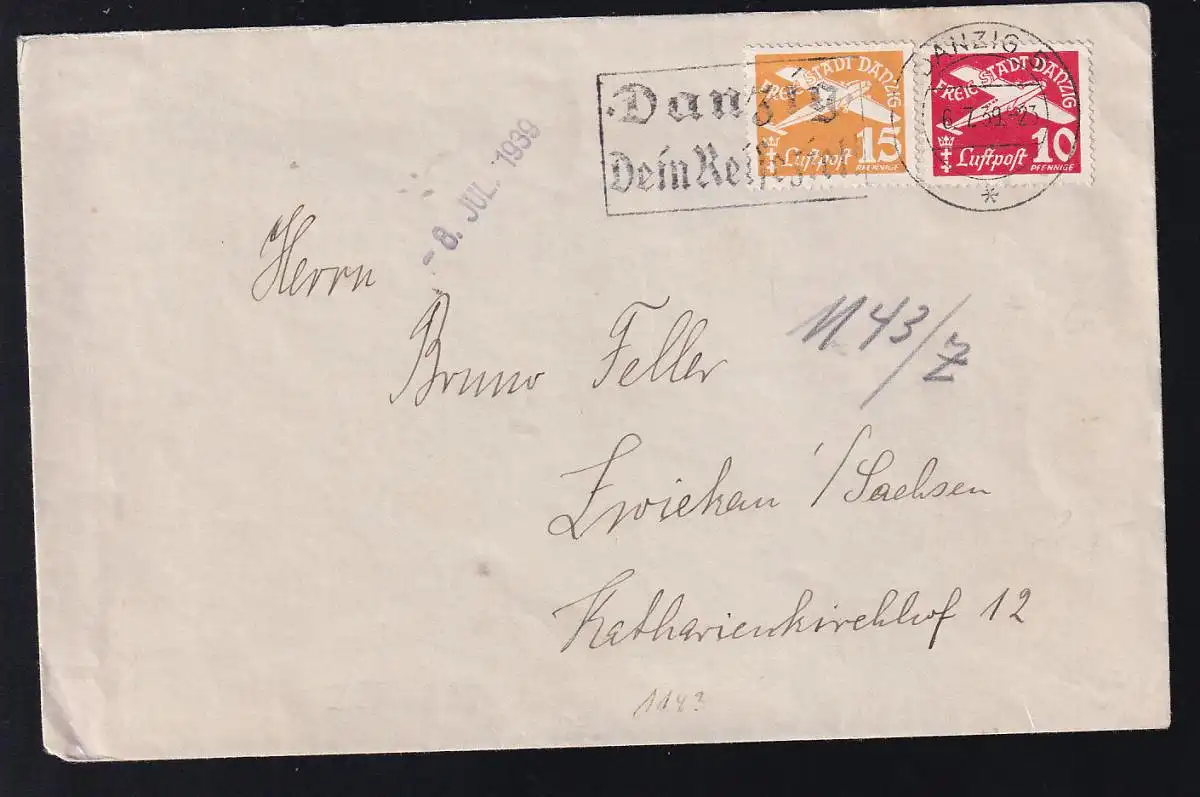 Danzig
Dein Reiseziel
FREIE STADT DANZIG
Luftpost 15
PFENNIGE
FREIE STADT DANZIG
Luftpost 10
PFENNIGE
DANZIG 5
6.7.39.-23
*
- 8. JUL. 1939
Herrn
Bruno Feller
1143/Z
Zwickau /Sachsen
Katharienkirchhof 12
1143